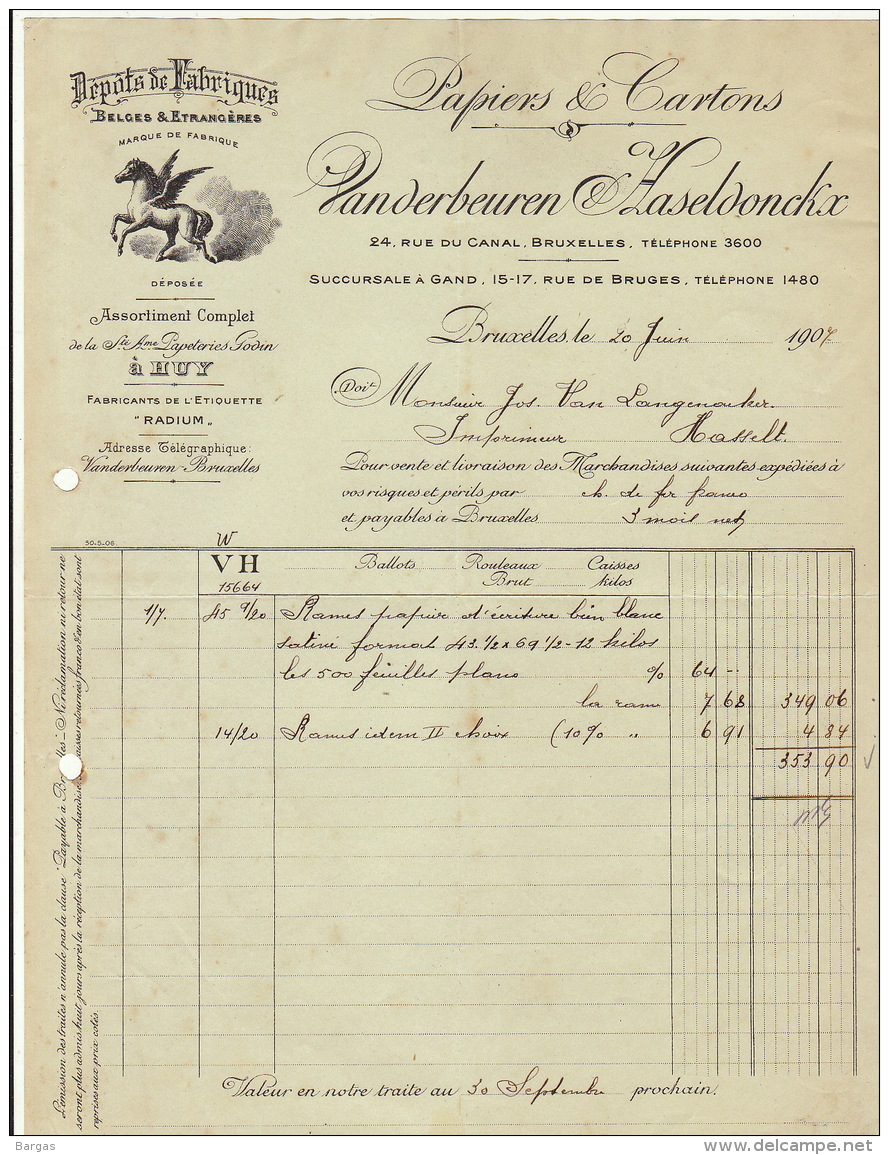 Dépôts de Fabriques
BELGES & ETRANGÈRES
MARQUE DE FABRIQUE
DÉPOSÉE
Assortiment Complet
de la Sté Ame Papeteries Godin
à HUY
FABRICANTS DE L'ETIQUETTE
"RADIUM"
Adresse Télégraphique:
Vanderbeuren-Bruxelles
Papiers & Cartons
Vanderbeuren & Haseldonckx
24, RUE DU CANAL, BRUXELLES, TÉLÉPHONE 3600
SUCCURSALE À GAND, 15-17, RUE DE BRUGES, TÉLÉPHONE 1480
Bruxelles, le 20 Juin 1907
Doit Monsieur Jos. Van Langenacker.
Imprimeur Hasselt.
Pour vente et livraison des Marchandises suivantes expédiées à
vos risques et périls par ch. de fer franco
et payables à Bruxelles 3 mois net
30-5-06.
VH Ballots Rouleaux Caisses
15664 Brut kilos
1/7. 45 9/20 Rames papier d'écriture bien blanc
satiné format 43.1/2 x 69 1/2 - 12 kilos
les 500 feuilles plano % 64 --
la rame 7 68 349 06
14/20 Rames idem II choix (10% " 6 91 4 84
353 90
Valeur en notre traite au 30 Septembre prochain.
L'émission des traites n'annule pas la clause "Payable à Bruxelles" - Ni réclamation ni retour ne
seront plus admis huit jours après la réception de la marchandise. Caisses retournées franco & en bon état sont
reprises aux prix cotés.
Bargas
www.delcampe.net